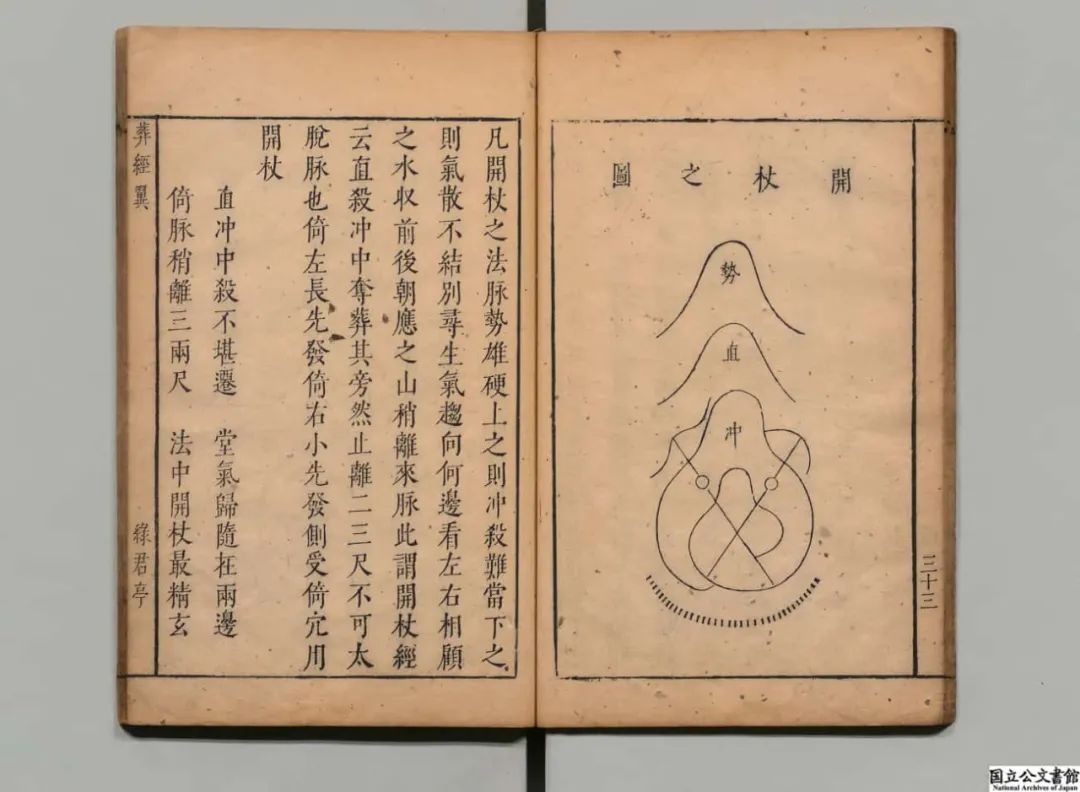 開杖之圖
勢
直
冲
三十三
凡開杖之法脉勢雄硬上之則冲殺難當下之
則氣散不結別尋生氣趨向何邊看左右相顧
之水収前後朝應之山稍離來脉此謂開杖經
云直殺冲中奪葬其旁然止離二三尺不可太
脫脉也倚左長先發倚右小先發側受倚穴用
開杖
直冲中殺不堪遷　堂氣歸隨在兩邊
倚脉稍離三兩尺　法中開杖最精玄
葬經翼
綠君亭
国立公文書館
National Archives of Japan